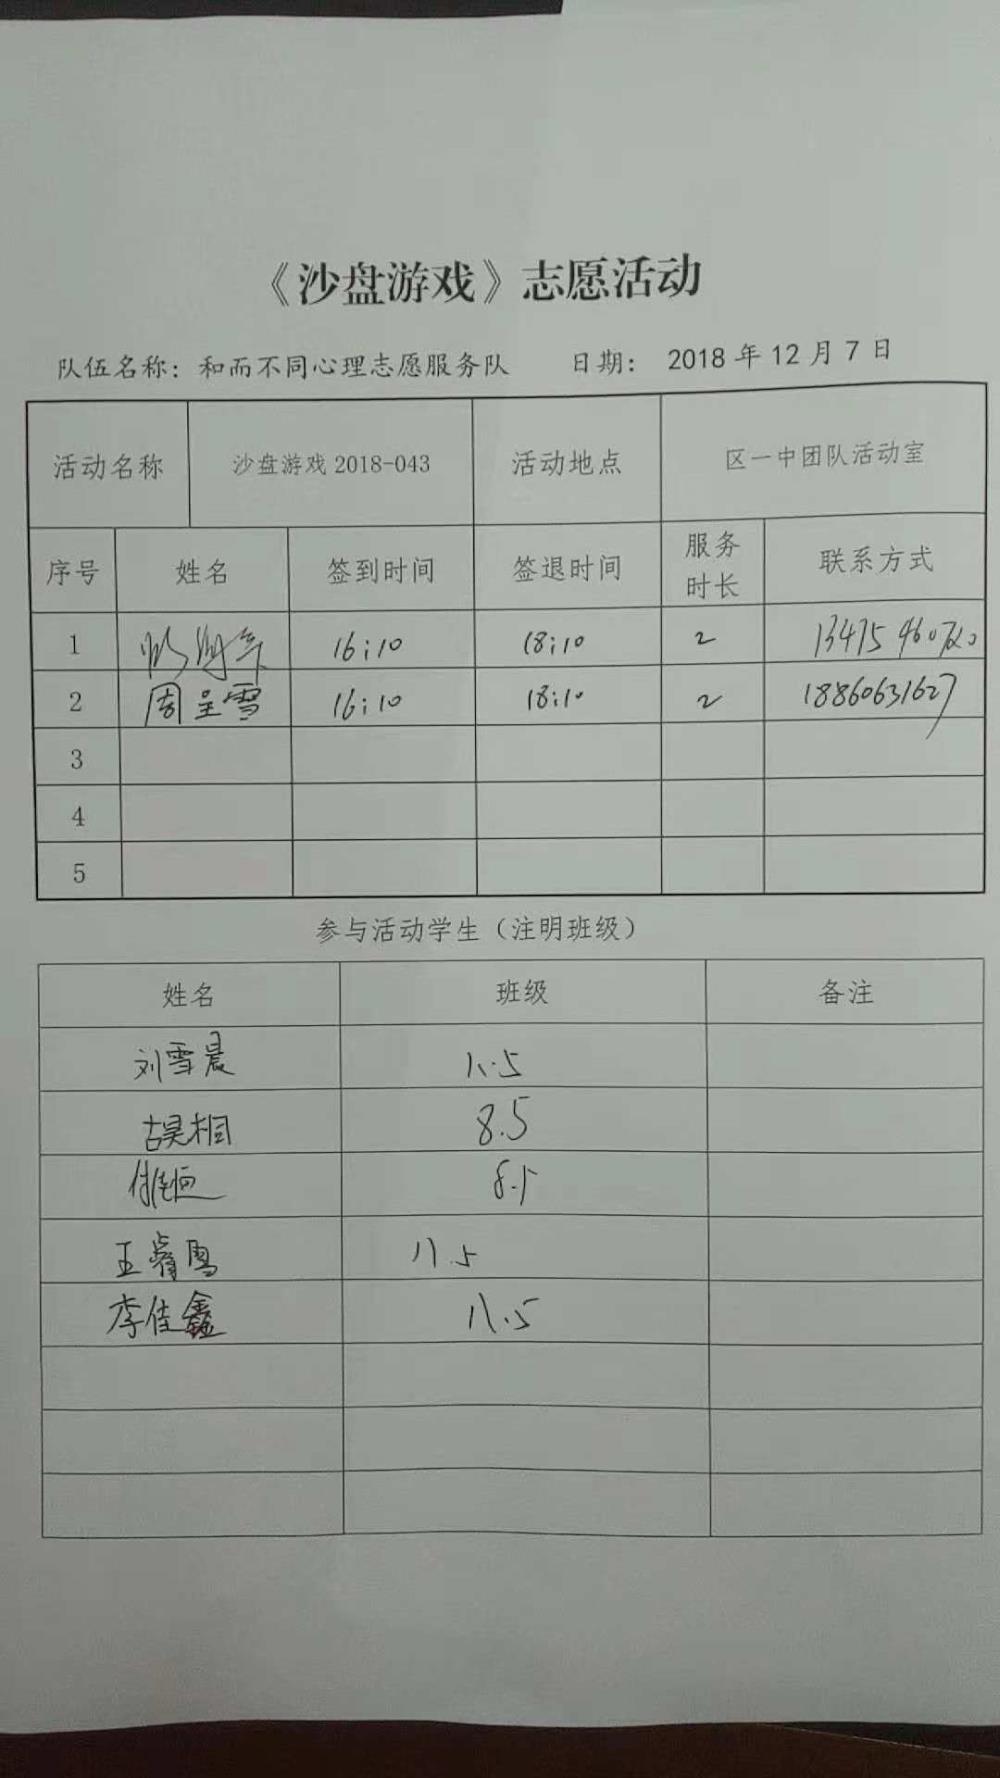 《沙盘游戏》志愿活动
队伍名称：和而不同心理志愿服务队 日期： 2018 年 12 月 7 日
活动名称 沙盘游戏 2018-043 活动地点 区一中团队活动室
序号 姓名 签到时间 签退时间 服务时长 联系方式
1 16:10 18:10 2
2 周呈雪 16:10 18:10 2 18860631627
3
4
5
参与活动学生（注明班级）
姓名 班级 备注
刘雪晨 八.5
古昊桐 8.5
8.5
王睿 八.5
李佳鑫 八.5